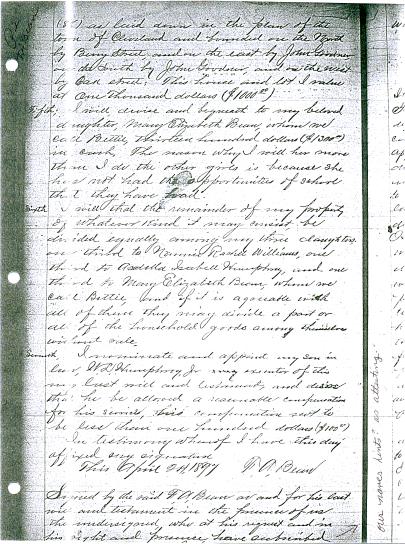 (8) as laid down in the plan of the
town of Cleveland and bounded on the North
by Berry street, and on the east by John Goodner
the South by John Goodner, and on the west
by Oak street. This house and lot I value
at One thousand dollars ($1000 00)
Fifth, I will devise and bequeath to my beloved
daughter Mary Elizabeth Bean, whom we
call Bettie, thirteen hundred dollars ($1300 00)
in cash. The reason why I will her more
than I do the other girls is because she
has not had the opportunities of school
that they have had.
Sixth I will that the remainder of my property
of whatever kind it may consist be
divided equally among my three daughters
one third to Nannie Rachel Williams, one
third to Isabell Humphry, and one
third to Mary Elizabeth Bean, whom we
call Bettie, and if it is agreeable with
all of them they may divide a part or
all of the household goods among themselves
without sale.
Seventh, I nominate and appoint my son in
law, W L Humphry Jr my executor of this
my last will and testament, and desire
that he be allowed a reasonable compensation
for his services, this compensation not to
be less than one hundred dollars ($100 00)
In testimony whereof I have this day
affixed my signature
This April 24 1897 P. A. Bean
Signed by the said P. A. Bean as and for his last
will and testament in the presence of us
the undersigned, who at his request and in
his sight and presence, have subscribed
our names hereto as attesting